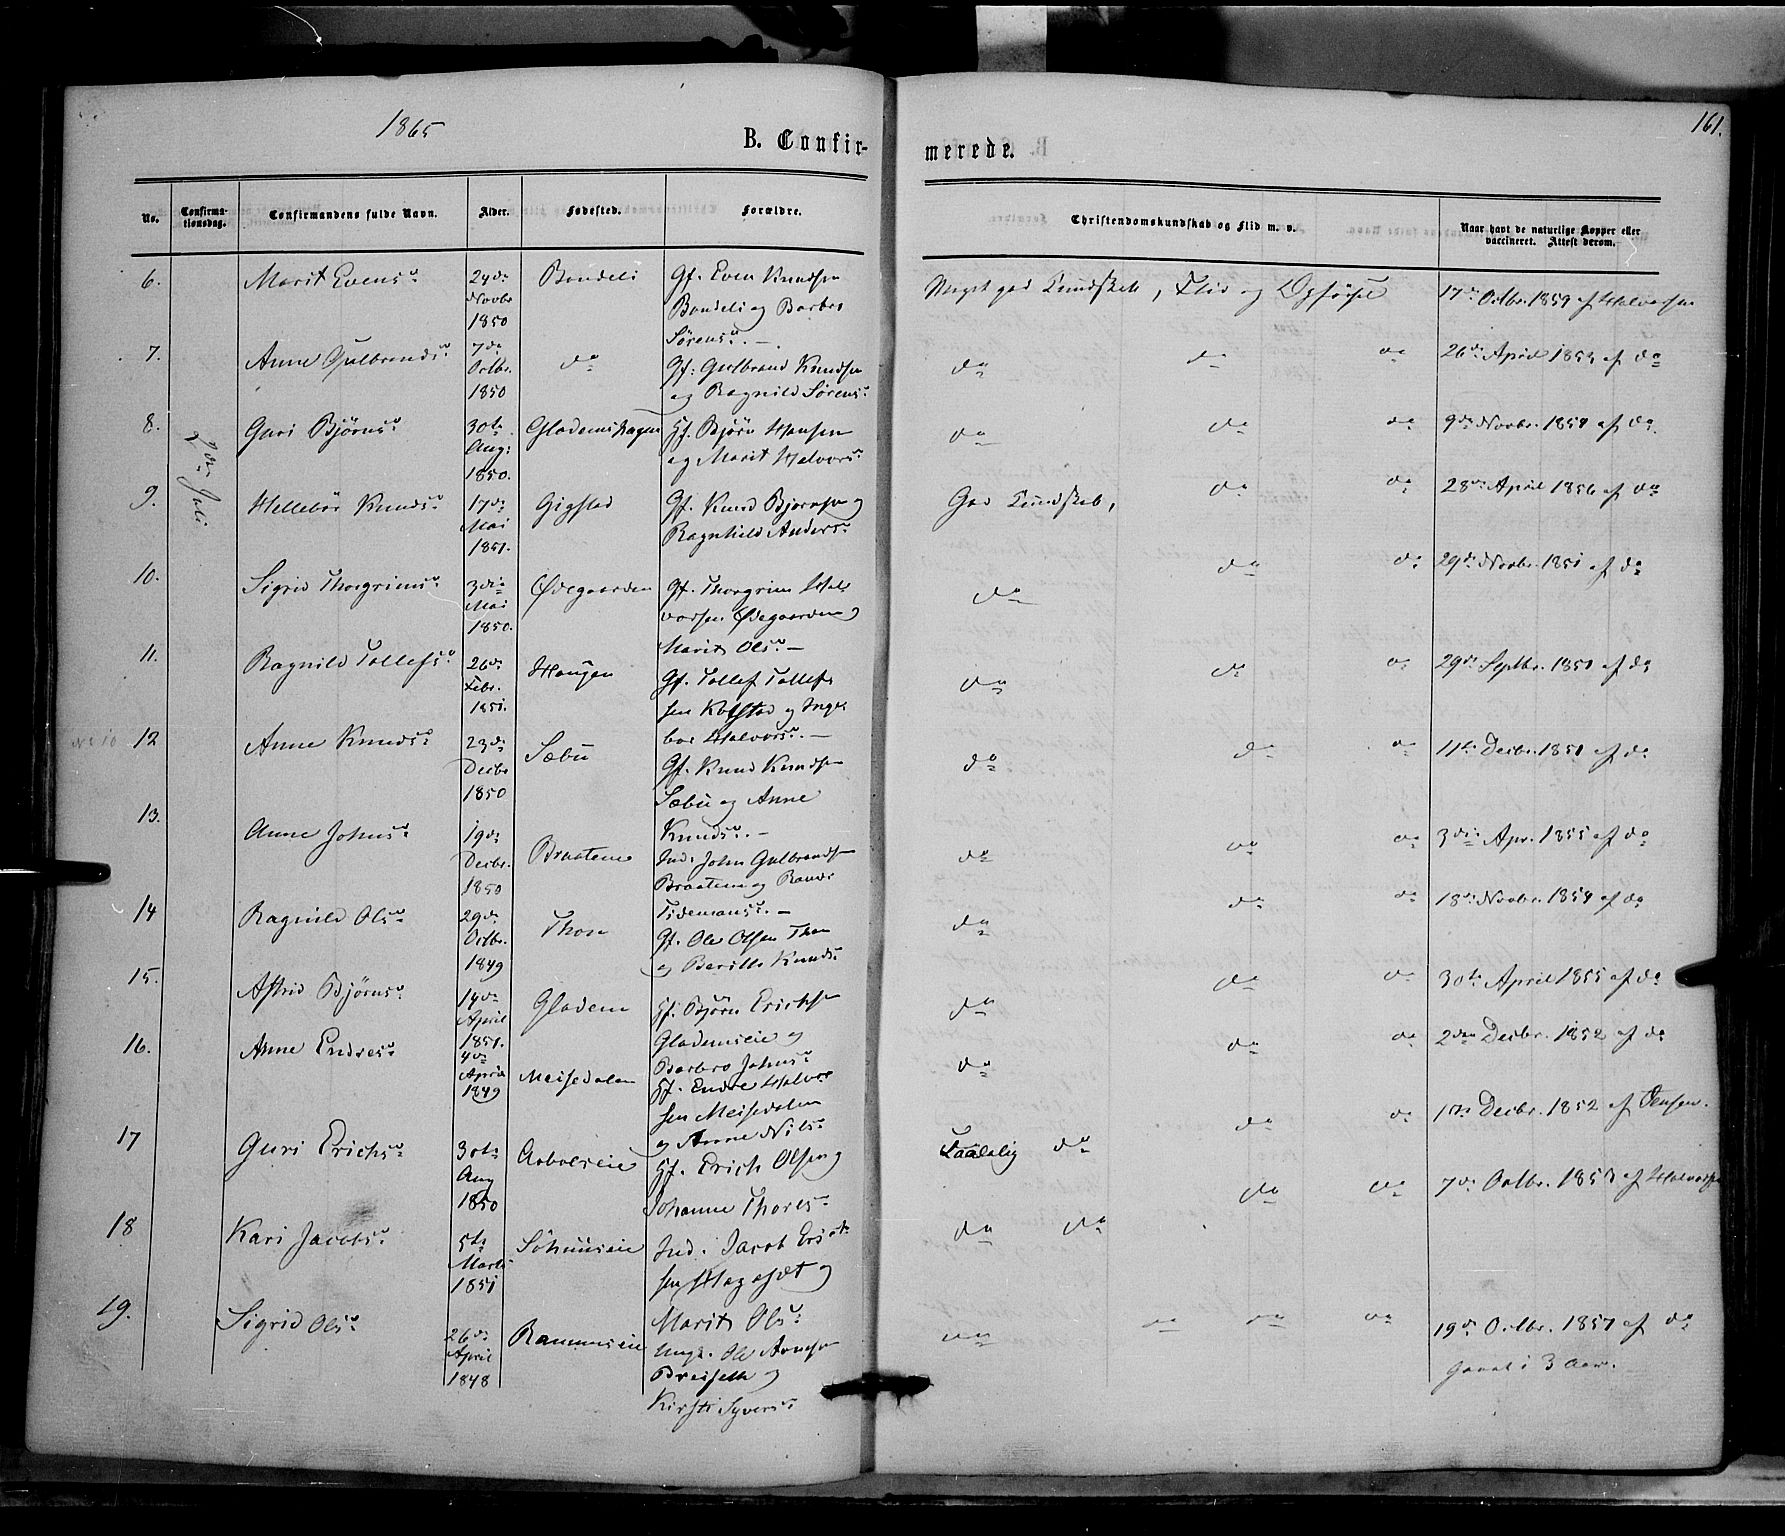 1865
161.
B. Confir-
merede.
No.
Confirma-
tionsdag.
Confirmandens fulde Navn.
Alder.
Fødested.
Forældre.
Christendomskundskab og Flid m. v.
Naar havt de naturlige Kopper eller
vaccineret. Attest derom.
2den Juli
6. Marit Evensd. 24de Novbr 1850 Bondeli
Gf. Even Knudsen
Bondeli og Barbro
Sørensd. –
Meget god Kundskab, Flid og Opførsel 17de Octbr. 1859 af Halvorsen
7. Anne Gulbrandsd. 7de Octbr. 1850 do
Gf. Gulbrand Knudsen
og Ragnild Sørensd.
do do do 26de April 1853 af do
8. Guri Bjørnsd. 30te Aug: 1850. Gladenshagen
Hf. Bjørn Hansen
og Marit Halvorsd.
do do do 9de Novbr. 1854 af do.
9. Hellebør Knudsd. 17de Mai 1851. Gigstad
Gf. Knud Bjørnsen og
Ragnhild Andersd.
God Kundskab, do do 28de April 1856 af do
10. Sigrid Thorgrimsd. 3die Mai 1850. Ødegaarden
Gf. Thorgrim Hal-
vorsen Ødegaarden og
Marit Olsd. –
do do do 29de Novbr. 1851 af do
11. Ragnild Tollefsd. 26de Febr. 1851. Haugen
Gf. Tollef Tollef-
sen Kolstad og Inge-
bor Halvorsd. –
do do do 29de Septbr. 1851 af do
No 10
12 Anne Knudsd. 23de Decbr 1850 Sæbu
Gf. Knud Knudsen
Sæbu og Anne
Knudsd. –
do do do 11te Decbr. 1851 af do
13. Anne Johnsd. 19de Decbr. 1850 Braatene
Ind: John Gulbrandsen
Braaten og Randi
Tidemansd. –
do do do 3die Apr. 1855 af do
14 Ragnild Olsd. 29de Octbr. 1849 Thon
Gf. Ole Olsen Thon
og Berille Knudsd.
do do do 18de Novbr. 1854 af do
15. Astrid Bjørnsd. 14de April 1851. Gladem
Hf. Bjørn Erichsen
Glademseie og
Barbro Johnsd.
do do do 30te April 1855 af do
16. Anne Endresd. 4de April 1849 Meisedalen
Hf. Endre Halvor-
sen Meisedalen
og Anne Nilsd.
do do do 2den Decbr. 1852 af do
17 Guri Erichsd. 30te Aug 1850 Aabolseie
Hf. Erich Olsen og
Johanne Thoresd.
Taalelig do do do 1ste Decbr. 1852 af Jensen.
18 Kari Jacobsd. 5te Marts 1851
Ind. Jacob Erich-
sen og
Marit Olsd.
do do do do 7de Octbr. 1853 af Halvorsen
19. Sigrid Olsd. 26de April 1848
Ungk. Ole Arnesen
og
Kirsti Syversd.
do do do do 19de Octbr. 1857 af do
gaaet i 3 Aar.